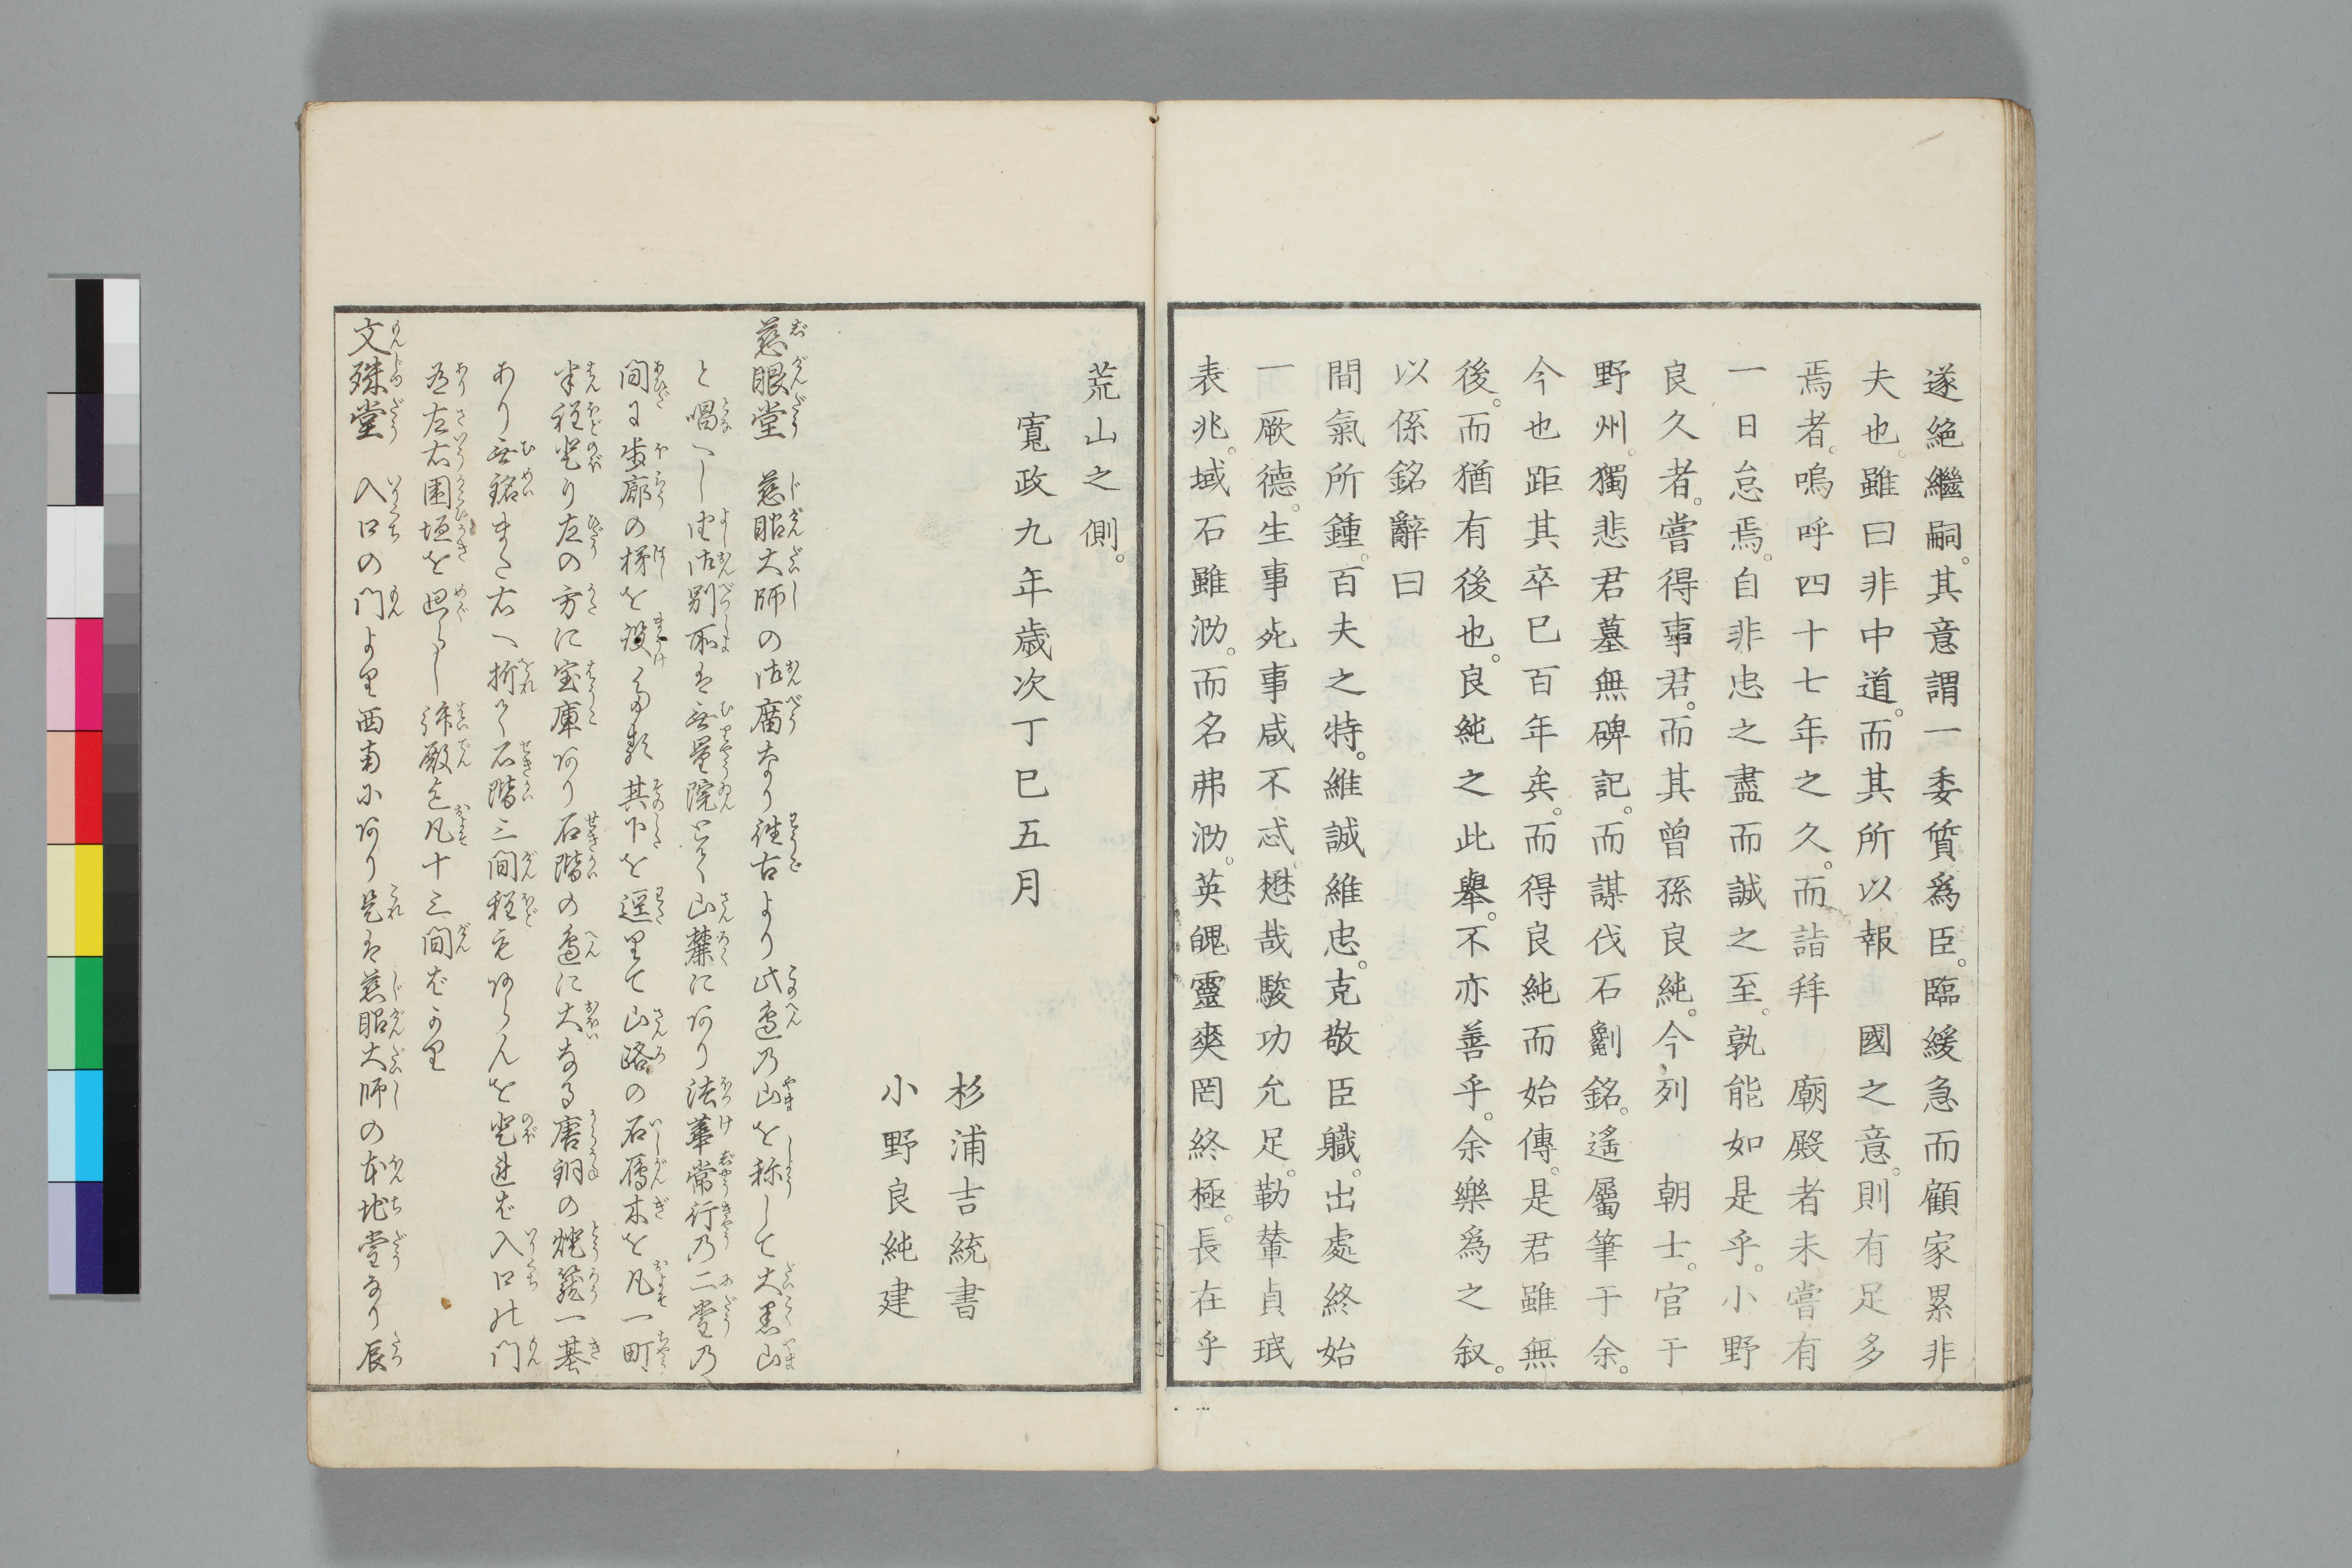 遂絶繼嗣。其意謂一委質爲臣。臨緩急而顧家累非
夫也。雖曰非中道。而其所以報　國之意。則有足多
焉者。嗚呼四十七年之久。而詣拜　廟殿者未嘗有
一日怠焉。自非忠之盡而誠之至。孰能如是乎。小野
良久者。嘗得事君。而其曾孫良純。今列　朝士。官于
野州。獨悲君墓無碑記。而謀伐石劖銘。遙屬筆于余。
今也距其卒已百年矣。而得良純而始傳。是君雖無
後。而猶有後也。良純之此舉。不亦善乎。余樂爲之叙。
以係銘辭曰
間氣所鍾。百夫之特。維誠維忠。克敬臣職。出處終始
一厥德。生事死事咸不忒。懋哉駿功允足。勒輦貞珉
表兆。域石雖泐。而名弗泐。英魄靈爽罔終極。長在乎
荒山之側。
寛政九年歳次丁巳五月
杉浦吉統書
小野良純建
慈眼堂　慈眼大師の御廟なり往古より此邉の山を称して大黒山
と唱へし由御別所を無量院とて山麓にあり法華常行の二堂の
間に歩廊の梯を設くる其下を逕りて山路の石鴈木を凡一町
半程登り左の方に宝庫あり石階の邉に大なる唐銅の燈籠一基
あり無銘また右へ折れて石階三間程もあらんを登進ば入口の門
有左右圍垣を廻らし拝殿迄凡十三間ばかり
文殊堂　入口の門より西南にあり是は慈眼大師の本地堂なり辰